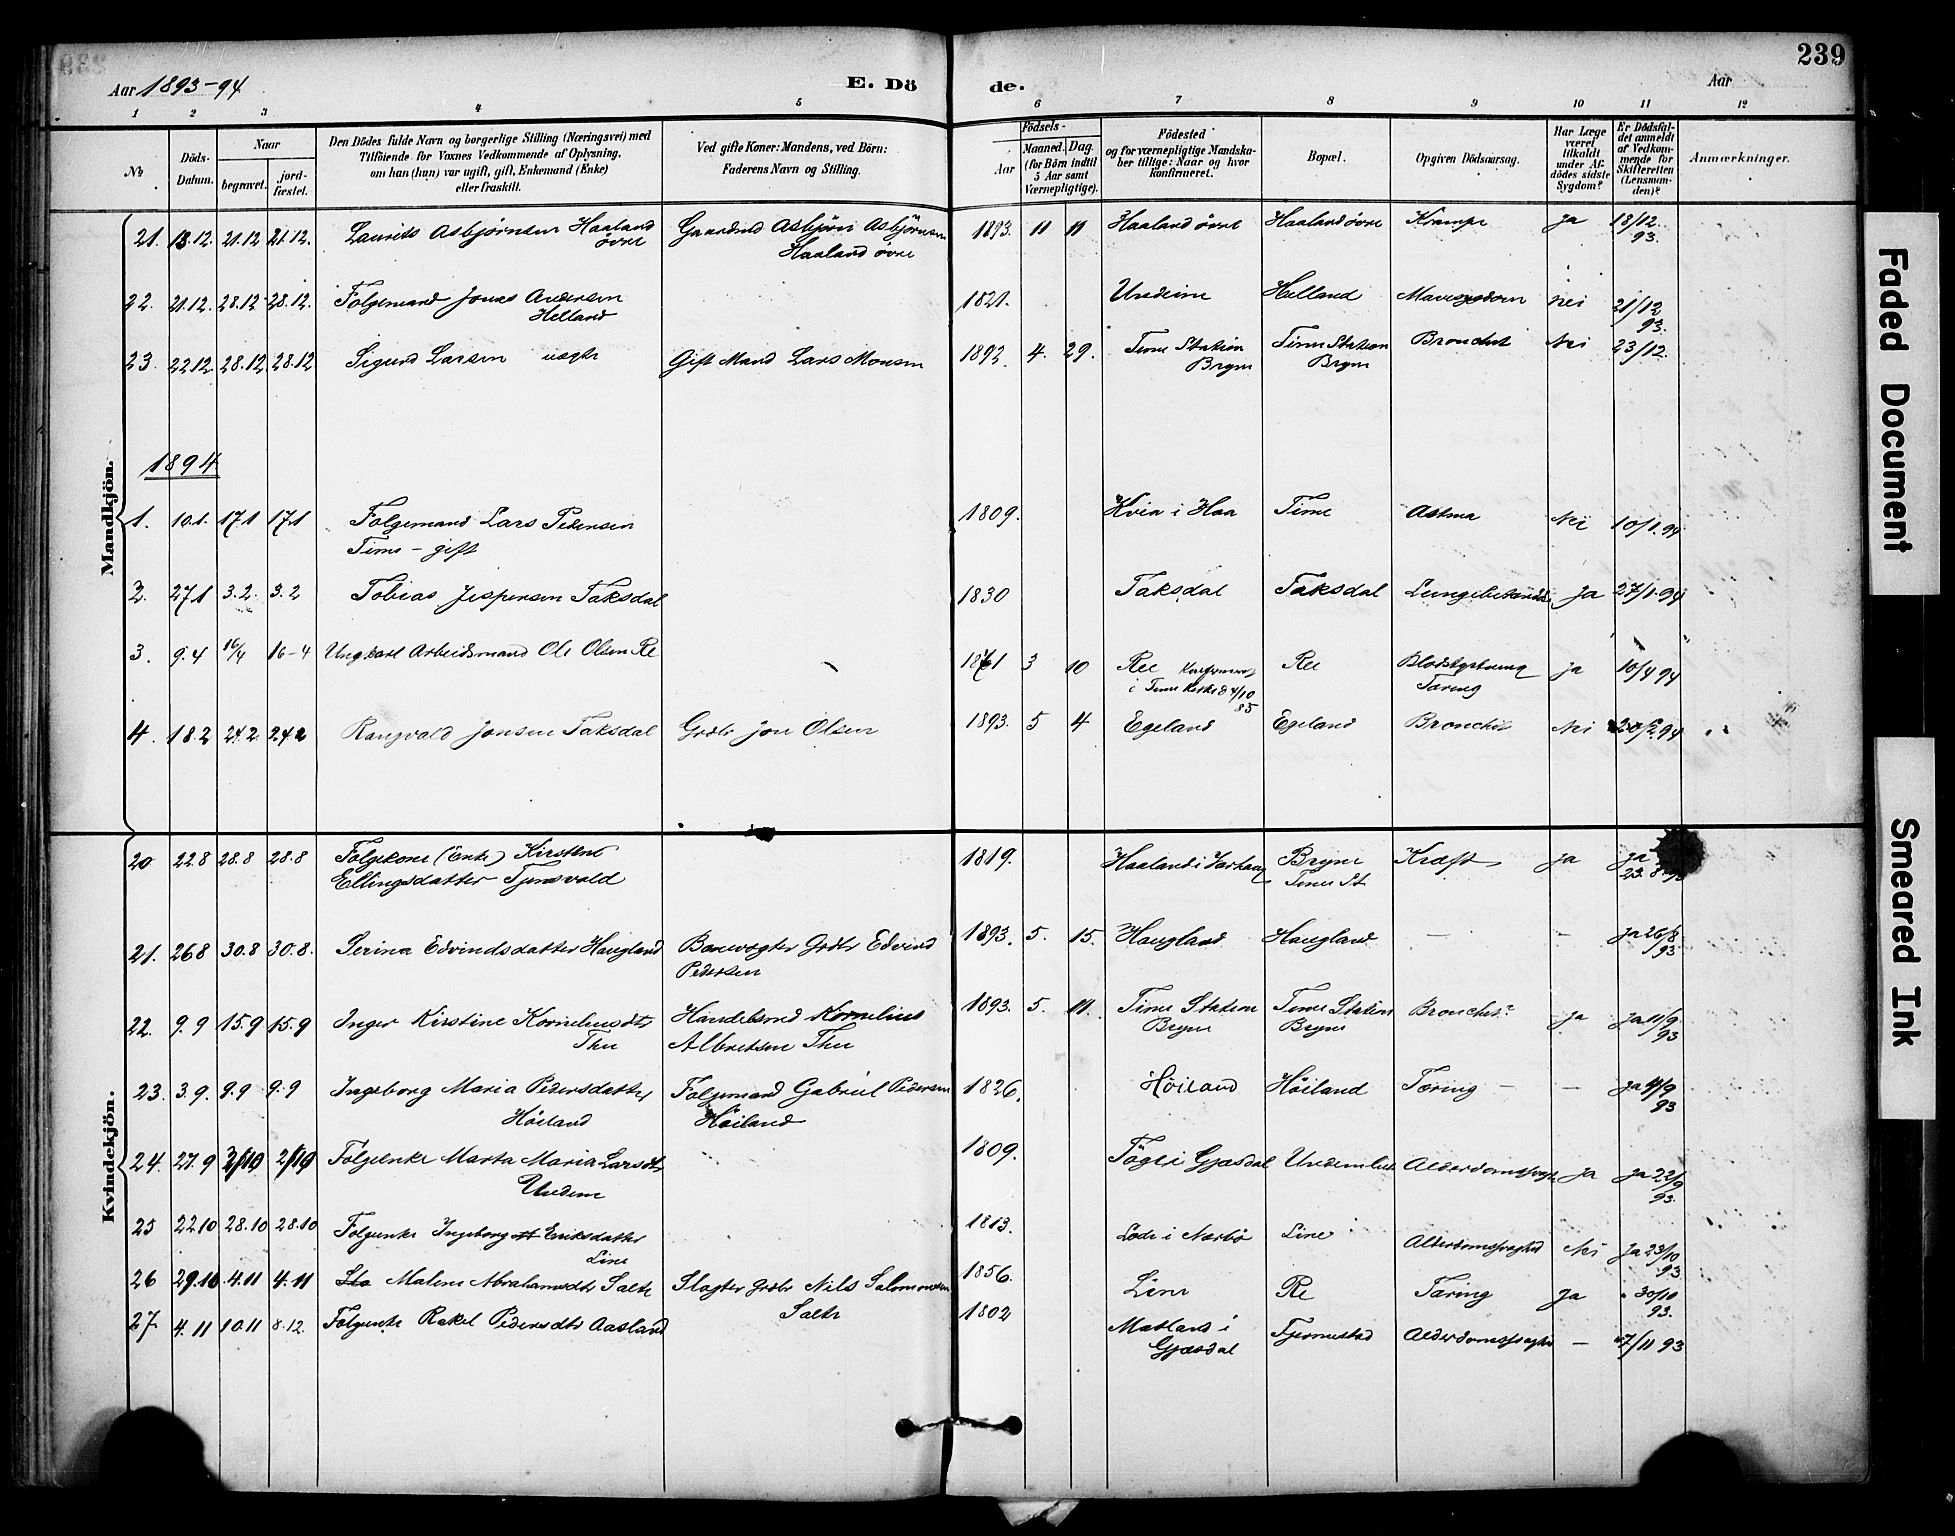 239
Aar 1893-94 E. Dö de. Aar
1 2 3 4 5 6 7 8 9 10 11 12
№
Döds-
Datum.
Naar
begravet.
jord-
fæstet.
Den Dödes fulde Navn og borgerlige Stilling (Næringsvei) med
Tilföiende for Voxnes Vedkommende af Oplysning,
om han (hun) var ugift, gift, Enkemand (Enke)
eller fraskilt.
Ved gifte Koner: Mandens, ved Börn:
Faderens Navn og Stilling.
Födsels-
Aar
Maaned. Dag.
(for Börn indtil
5 Aar samt
Værnepligtige).
Födested
og for værnepligtige Mandska-
ber tillige: Naar og hvor
konfirmeret.
Bopæl.
Opgiven Dödsaarsag.
Har Læge
været
tilkaldt
under Af-
dödes sidste
Sygdom?
Er Dödsfal-
det anmeldt
af Vedkom-
mende for
Skifteretten
(Lensman-
den)?
Anmærkninger.
Mandkjön.
21. 13.12. 21.12 21.12. Laurits Asbjørnsen Haaland Gaardmd Asbjörn Asbjörnsen 1893. 11 11 Haaland övre Haaland övre Krampe Ja 18/12
övre Haaland övre 93.
22. 21.12. 28.12 28.12. Folgemand Jonas Andersen 1821. Undeim Helland nei 21/12
Helland 93.
23. 22.12. 28.12 28.12 Sigurd Larsen uægte Gift Mand Lars Monsen 1892. 4. 29. Time Station Time Station Bronchit Nei 23/12.
Bryne Bryne
1894
1. 10.1. 17.1 17.1 Folgemand Lars Pedersen 1809. Kvia i Haa Time Astma Nei 10/1.94
Time - gift
2. 27.1 3.2. 3.2 Tobias Jespersen Taksdal 1830 Taksdal Taksdal Ja 27/1.94
3. 9.4 16/4 16-4 Ungkarl Arbeidsmand Ole Olsen Re 1871 3 10 Ree Ree Blodstyrtning Ja 10/4 94
i Time Kirke d 4/10 Tæring
85
4. 18.2 24.2. 24.2 Rangvald Jonsen Taksdal Grdbr Jon Olsen 1893. 5 4 Egeland Egeland Bronchit Nei 20/2.94
Kvindekjön.
20 22.8 28.8 28.8 Folgekone (Enke) Kirstene 1819. Haaland i Varhaug Bryne Kræft Ja Ja
Ellingsdatter Tjensvold Time St 23.8
21. 26.8 30.8 30.8. Serina Edvindsdatter Haugland Banevogter Grdbr Edvind 1893. 5. 15. Haugland Haugland - - ja 26/8
Pedersen 93
22. 9.9 15.9 15.9 Inger Kirstine Korneliusdtr Handelsmd Kornelius 1893. 5. 11. Time Station Time Station Bronchit Ja Ja 11/9
Thu Albretsen Thu Bryne Bryne 93
23. 3.9. 9.9 9.9 Ingeborg Maria Pedersdatter Folgemand Gabriel Pedersen 1826. Höiland Höiland Tæring - - ja 4/9
Höiland Höiland 93
24. 21.9 2/10 2/10 Folgeenke Marta Maria Larsdtr 1809. i Gjæsdal Undemlien Alderdomssvagh Ja Ja 22/9
Undem 93.
25 22.10 28.10 28.10 Folgeenke Ingeborg Eriksdatter 1813. Lode i Nærbö Line Alderdomssvaghed Nei Ja 23/10
Line 93.
26 29.10 4.11 4.11 Malene Abrahamsdtr Salte Slagter Grdbr Nils Salomonsen 1856. Line Re Tæring Ja 30/10
Salte 93.
27 4.11 10.11 8.12 Folgenke Rakel Pedersdtr Aasland 1802 Matland i Tjemestad Alderdomssvaghed - 7/11 93
Gjæsdal
Faded Document
Smeared Ink